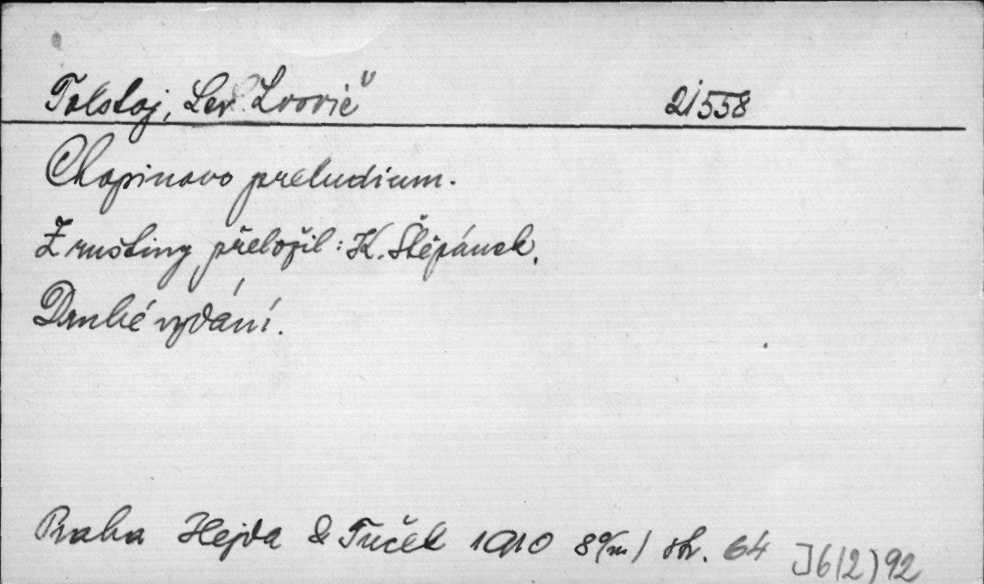 Tolstoj, Lev Lvovič 2i558
Chopinovo preludium.
Z ruštiny přeložil: K. Štěpánek.
Druhé vydání.
Praha Hejda & Tuček 1910 8°/m/ str. 64 J6/2)92